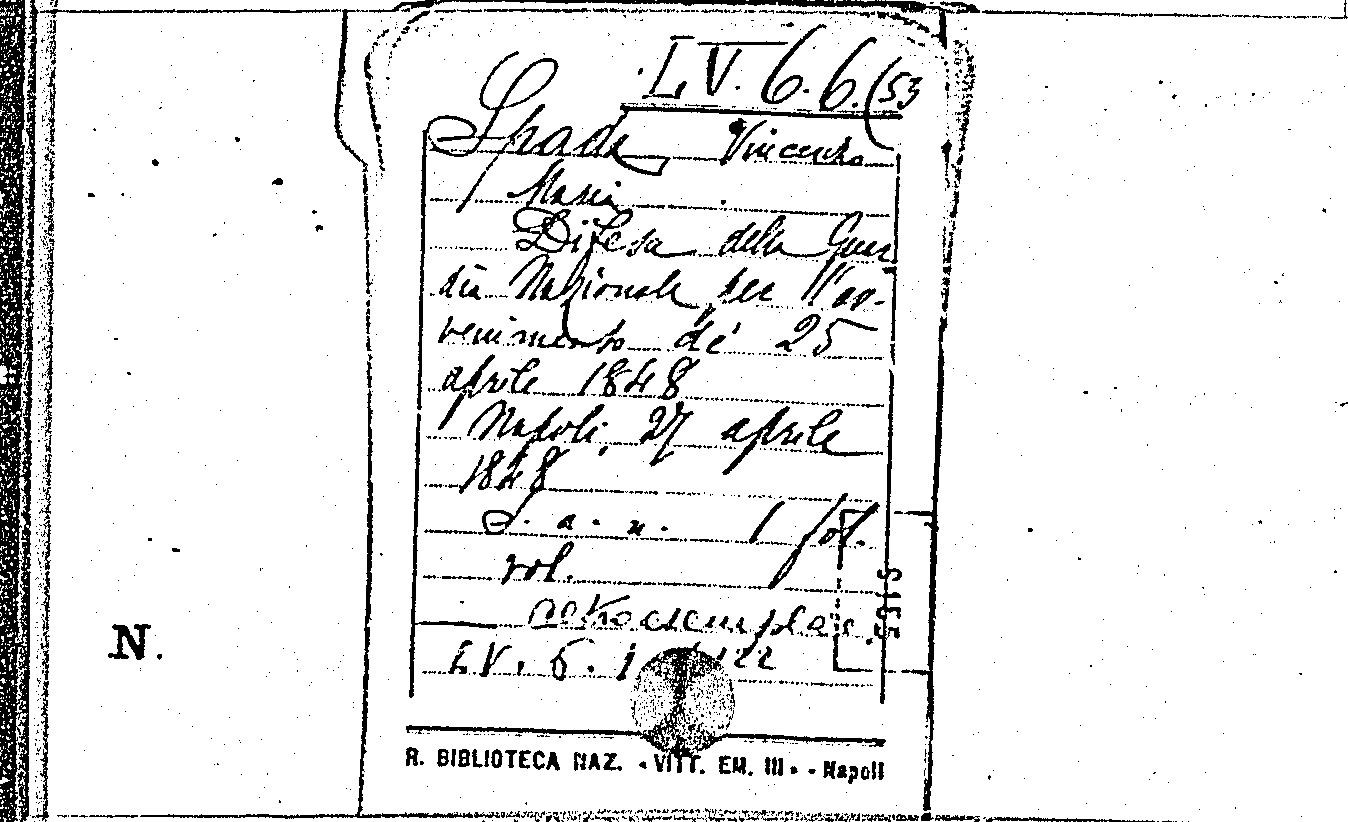 L.V. 6. 6. (53
Spada Vincenzo
Maria
Difesa della Guar
dia Nazionale per l'av-
venimento de' 25
aprile 1848
Napoli, 27 aprile
1848
S. a. n. 1 fol.
vol.
altro esemplare
LV. 6. 1 122
SIEE
N.
R. BIBLIOTECA NAZ. «VITT. EM. III» - Napoli